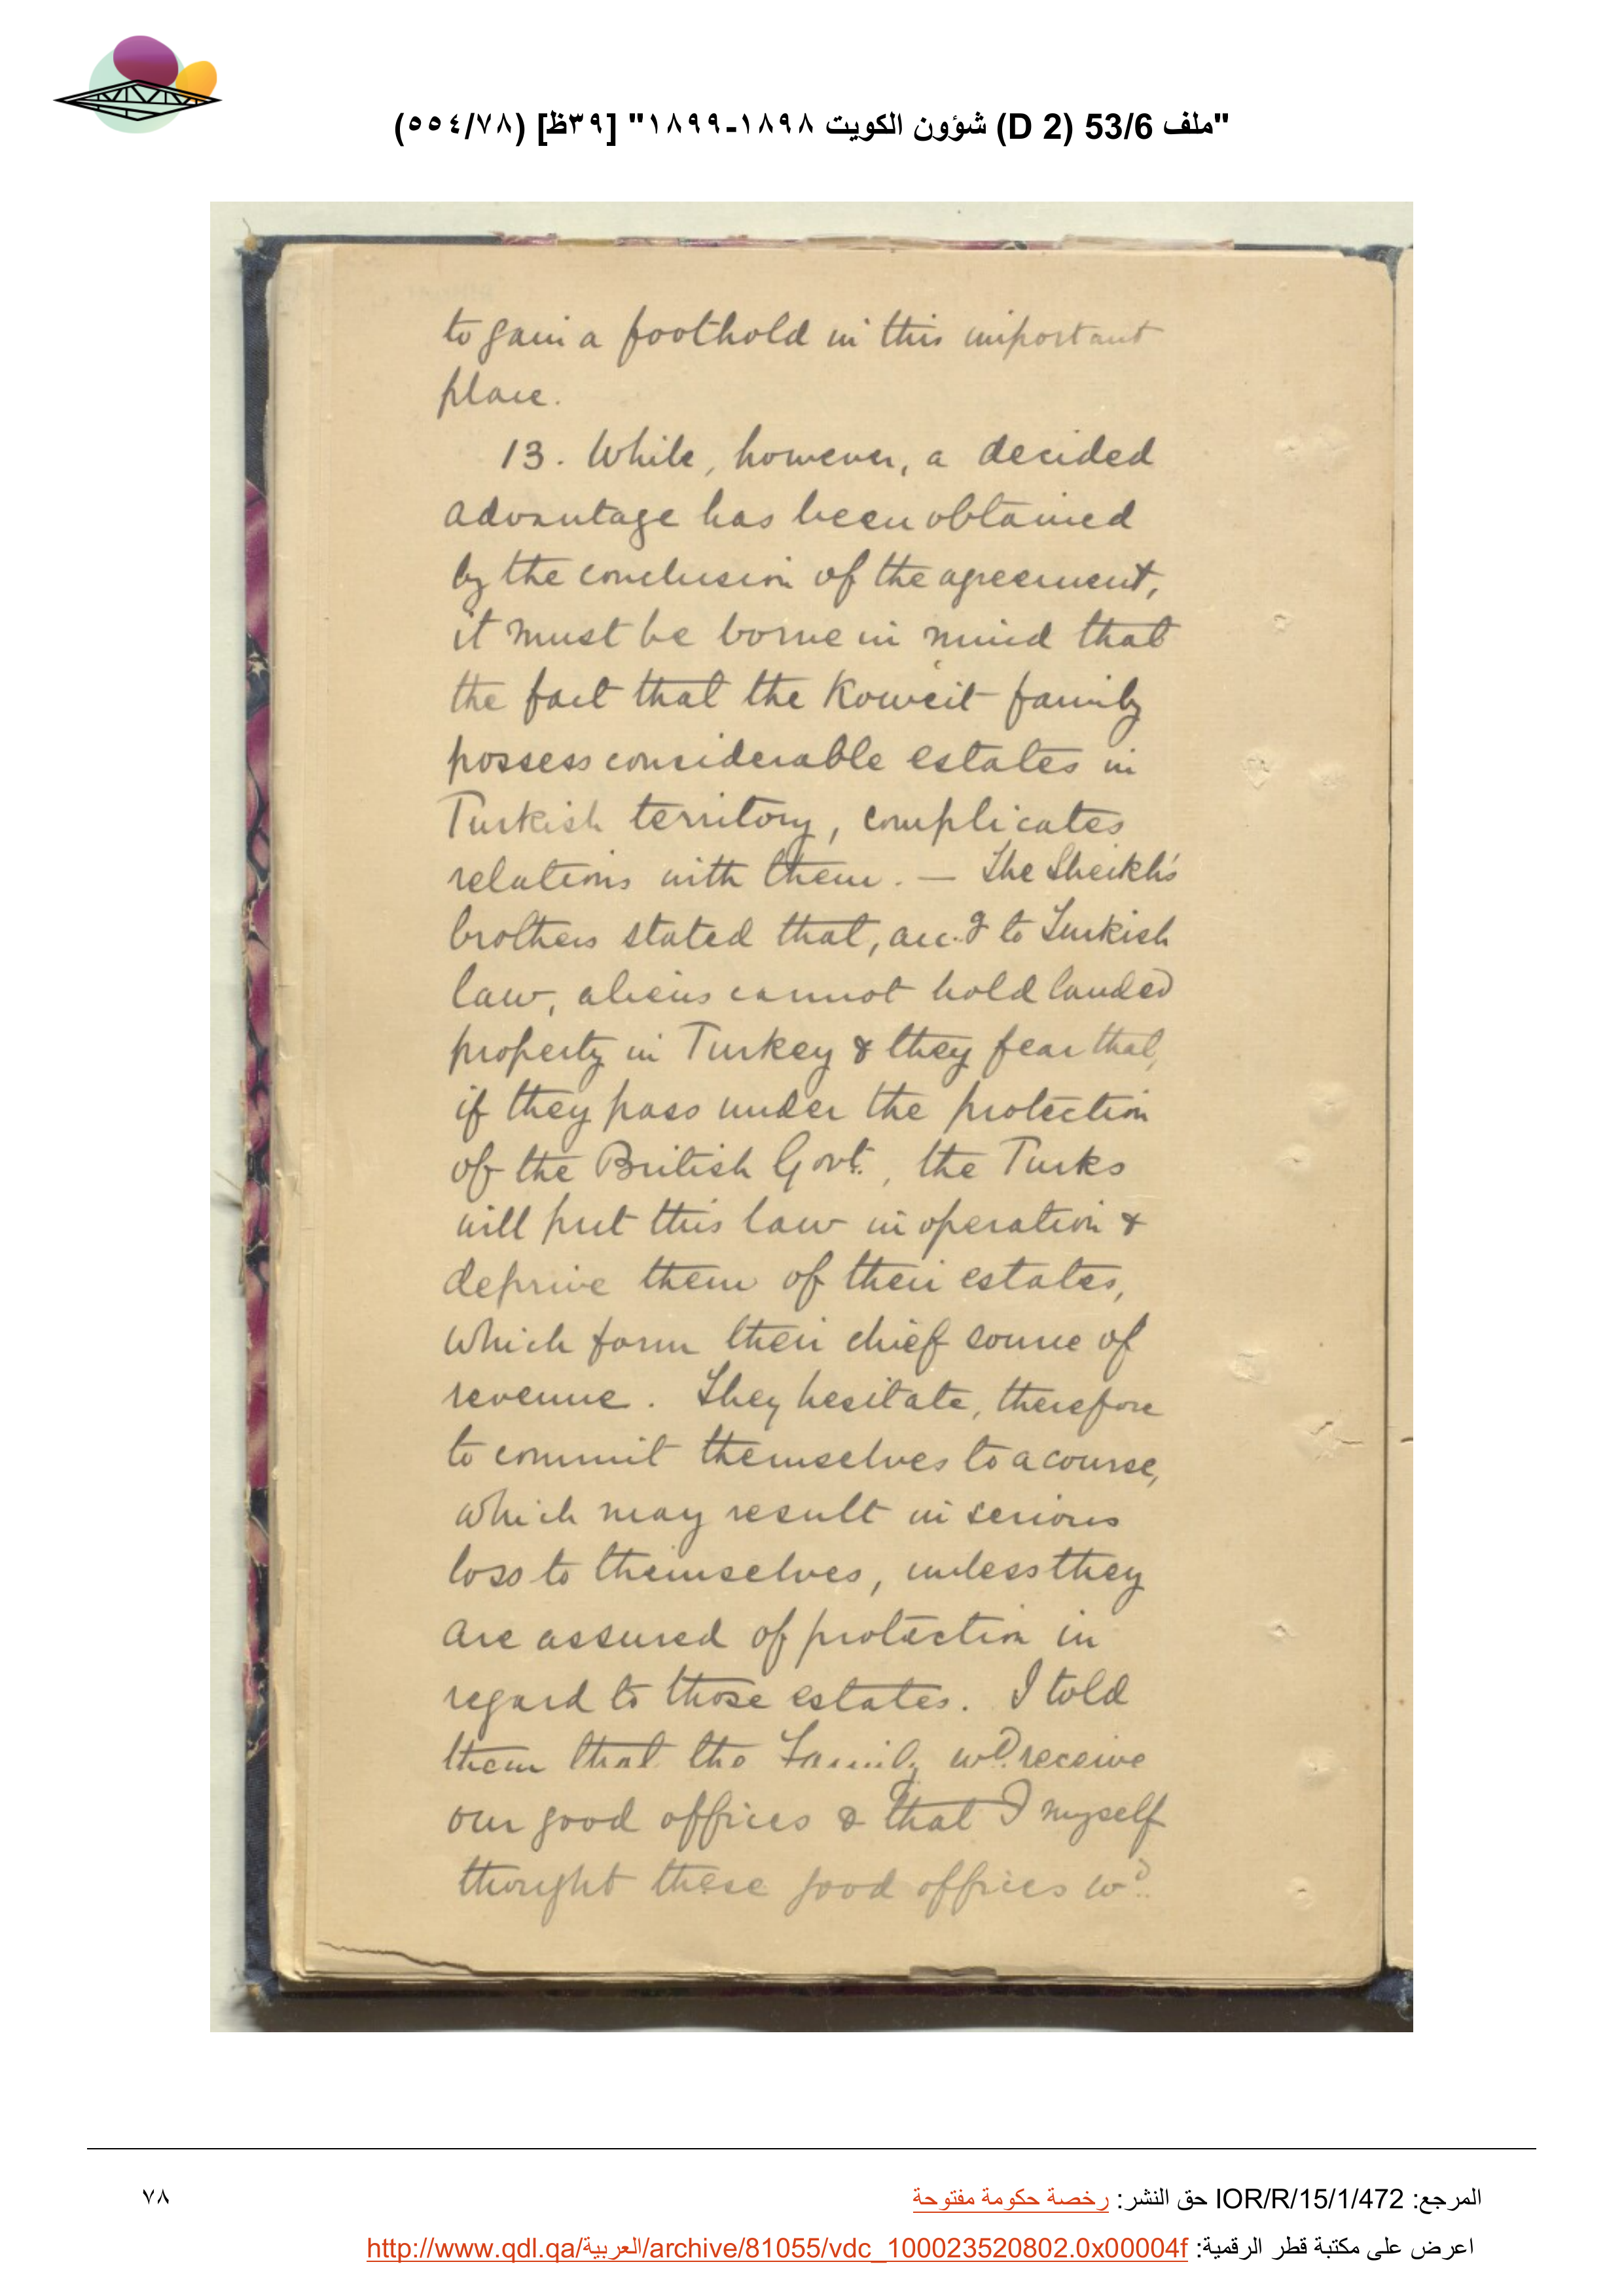 "ملف 53/6 (D 2) شؤون الكويت ١٨٩٨-١٨٩٩" [٣٩ظ] (٥٥٤/٧٨)
to gain a foothold in this important
place.
13. While, however, a decided
advantage has been obtained
by the conclusion of the agreement,
it must be borne in mind that
the fact that the Koweit family
possess considerable estates in
Turkish territory, complicates
relations with them. — The Sheikh's
brothers stated that, acc.g to Turkish
law, aliens cannot hold landed
property in Turkey & they fear that,
if they pass under the protection
of the British Govt., the Turks
will put this law in operation &
deprive them of their estates,
which form their chief source of
revenue. They hesitate, therefore
to commit themselves to a course,
which may result in serious
loss to themselves, unless they
are assured of protection in
regard to those estates. I told
them that the Family wd. receive
our good offices & that I myself
thought these good offices wd.
المرجع: IOR/R/15/1/472 حق النشر: رخصة حكومة مفتوحة
٧٨
اعرض على مكتبة قطر الرقمية: http://www.qdl.qa/العربية/archive/81055/vdc_100023520802.0x00004f